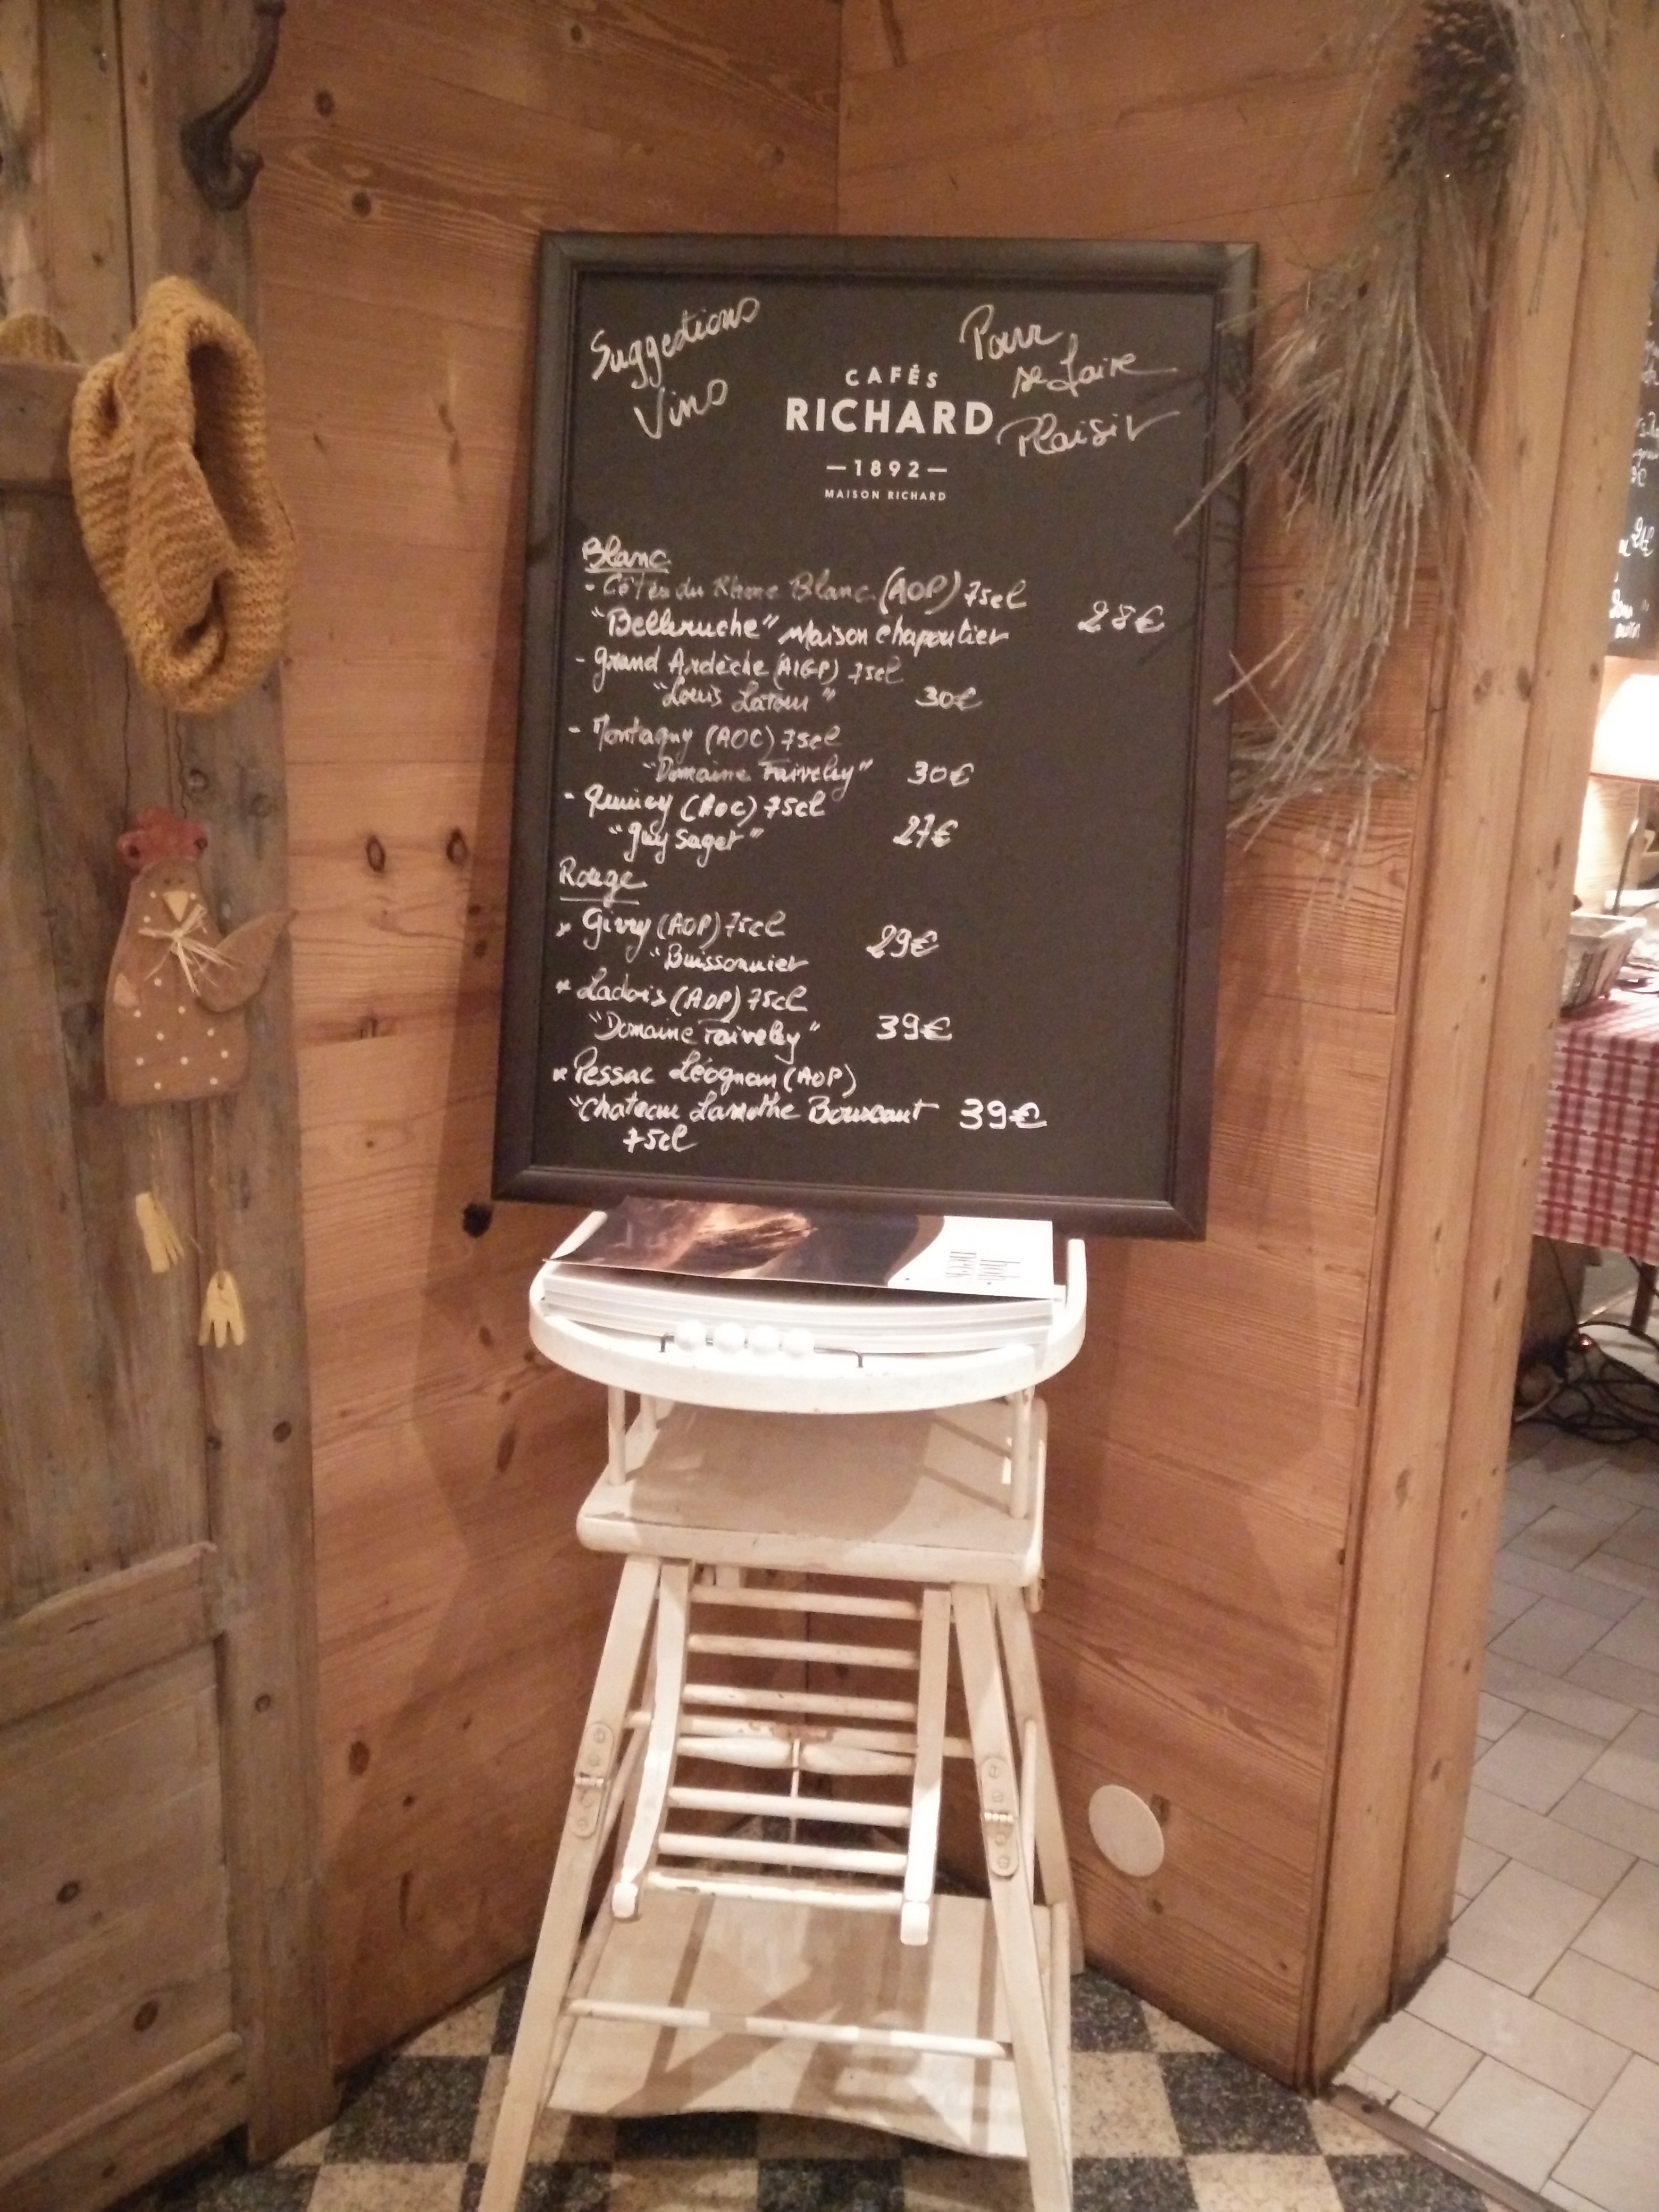 Suggestions
Vins
Pour
se faire
Plaisir
CAFÉS
RICHARD
—1892—
MAISON RICHARD
Blanc
- Côtes du Rhone Blanc (AOP) 75cl
"Belleruche" Maison Chapoutier 28€
- Grand Ardèche (AIGP) 75cl
"Louis Latour" 30€
- Montagny (AOC) 75cl
"Domaine Faiveley" 30€
- Quincy (AOC) 75cl
"Guy Saget" 27€
Rouge
* Givry (AOP) 75cl
"Buissonnier 29€
* Ladois (AOP) 75cl
"Domaine Faiveley" 39€
* Pessac Léognan (AOP)
"Chateau Lamothe Bouscaut 39€
75cl